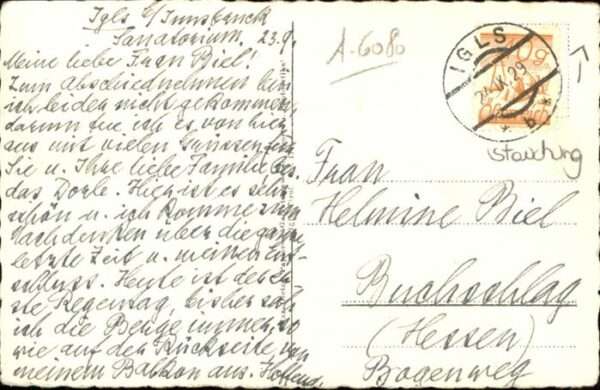 Igls b/Innsbruck
Sanatorium 23.9.
Meine liebe Frau Biel!
Zum Abschiednehmen bin
ich leider nicht gekommen,
darum tue ich es von hier
aus mit vielen Grüssen für
Sie u. Ihre liebe Familie bes.
das Dorle. Hier ist es sehr
schön u. ich komme zum
Nachdenken über die ganze
letzte Zeit u. meinen Ent-
schluss. Heute ist der er-
ste Regentag, bisher sah
ich die Berge immer so
wie auf der Rückseite von
meinem Balkon aus. Hoffend
A-6080
IGLS
24. IX. 29
* b *
10g
Österreich
Stauchung
Frau
Helmine Biel
Buchschlag
(Hessen)
Bogenweg